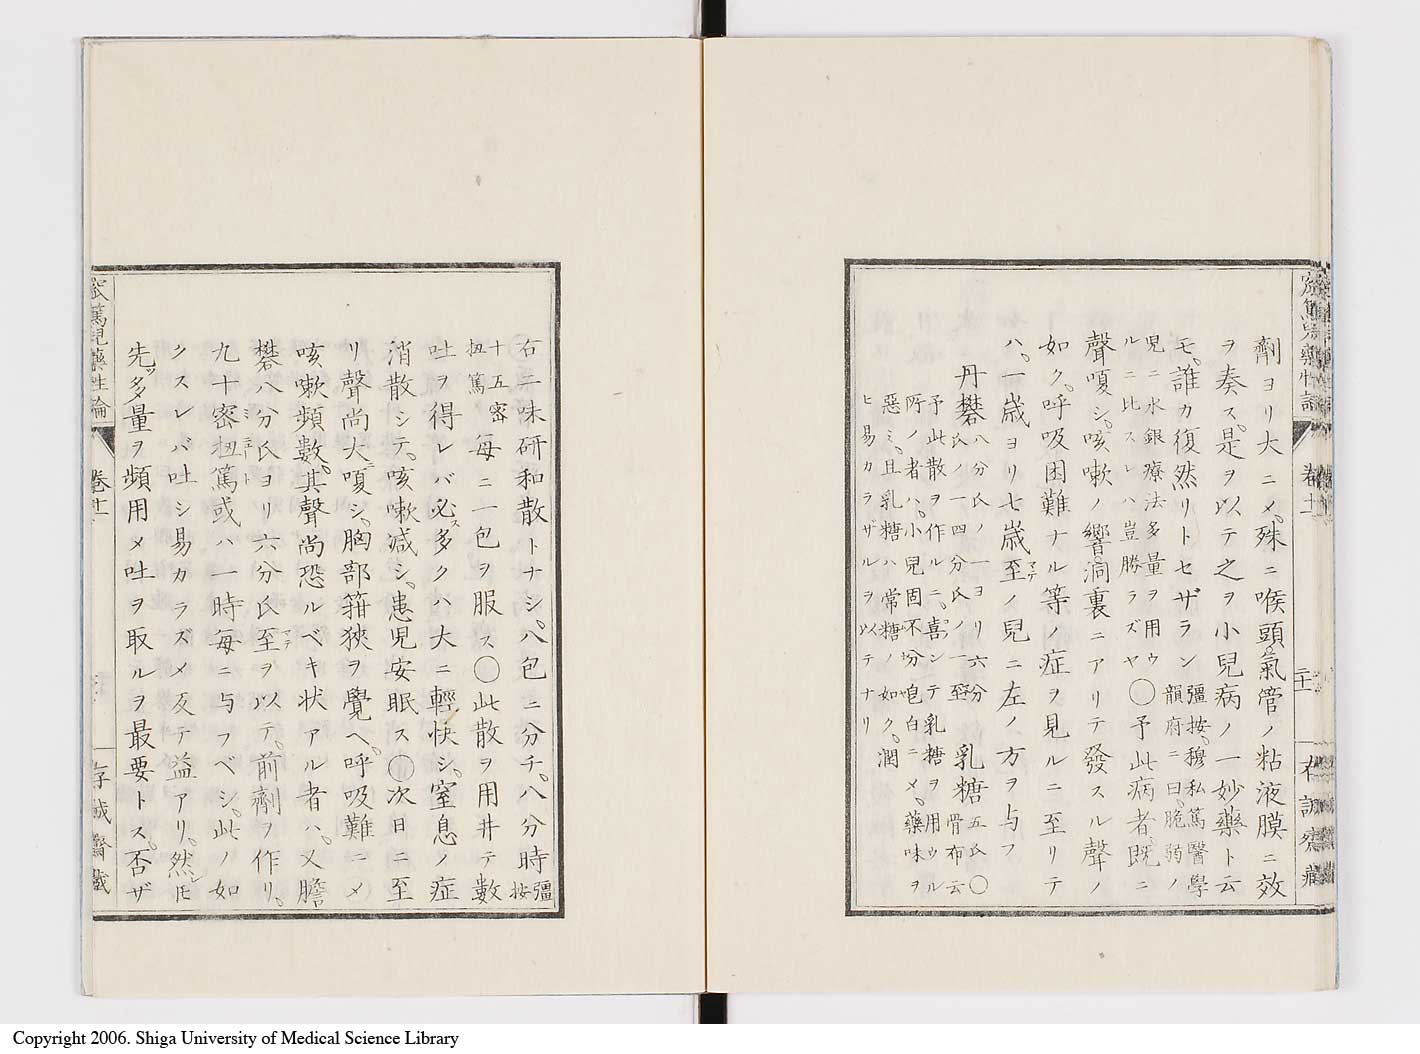 劑ヨリ大ニメ、殊ニ喉頭氣管ノ粘液膜ニ效
ヲ奏ス、是ヲ以テ之ヲ小兒病ノ一妙藥ト云
モ、誰カ復然リトセザラン 彊按、穆私篤醫學
韻府ニ曰、脆弱ノ
児ニ水銀療法多量ヲ用ウ
ルニ比スレハ豈勝ラズヤ〇予此病者、既ニ
聲嗄シ、咳嗽ノ響洞裏ニアリテ發スル聲ノ
如ク、呼吸困難ナル等ノ症ヲ見ルニ至リテ
ハ、一歳ヨリ七歳至マテノ兒ニ左ノ方ヲ与フ
丹礬 八分氏ノ一ヨリ六分
氏ノ一四分氏ノ一至 乳糖 五氏〇
骨布云
予此散ヲ作ルニ、喜ンテ乳糖ヲ用ウル
所ノ者ハ、小兒固不分皀白ニメ、藥味ヲ
惡ミ、且乳糖ハ常糖ノ如ク、潤
ヒ易カラザルヲ以テナリ
卷十一
二十一
存誠齋藏
右二味研和散トナシ、八包ニ分チ、八分時 彊
按
十五密
扭篤 毎ニ一包ヲ服ス〇此散ヲ用井テ數
吐ヲ得レバ必ス多クハ大ニ輕快シ、窒息ノ症
消散シテ、咳嗽減シ、患児安眠ス〇次日ニ至
リ聲尚大ニ嗄シ、胸部箝狹ヲ覺ヘ、呼吸難ニメ
咳嗽頻數、其聲尚恐ルベキ状アル者ハ、又膽
礬八分氏ヨリ六分氏至マテヲ以テ、前劑ヲ作リ、
九十密扭篤ミニュート或ハ一時毎ニ与フベシ、此ノ如
クスレバ吐シ易カラズメ反テ益アリ、然シ𪜈
先ツ多量ヲ頻用メ吐ヲ取ルヲ最要トス、否ザ
篤兒藥性論
卷十一
存誠齋藏
Copyright 2006. Shiga University of Medical Science Library